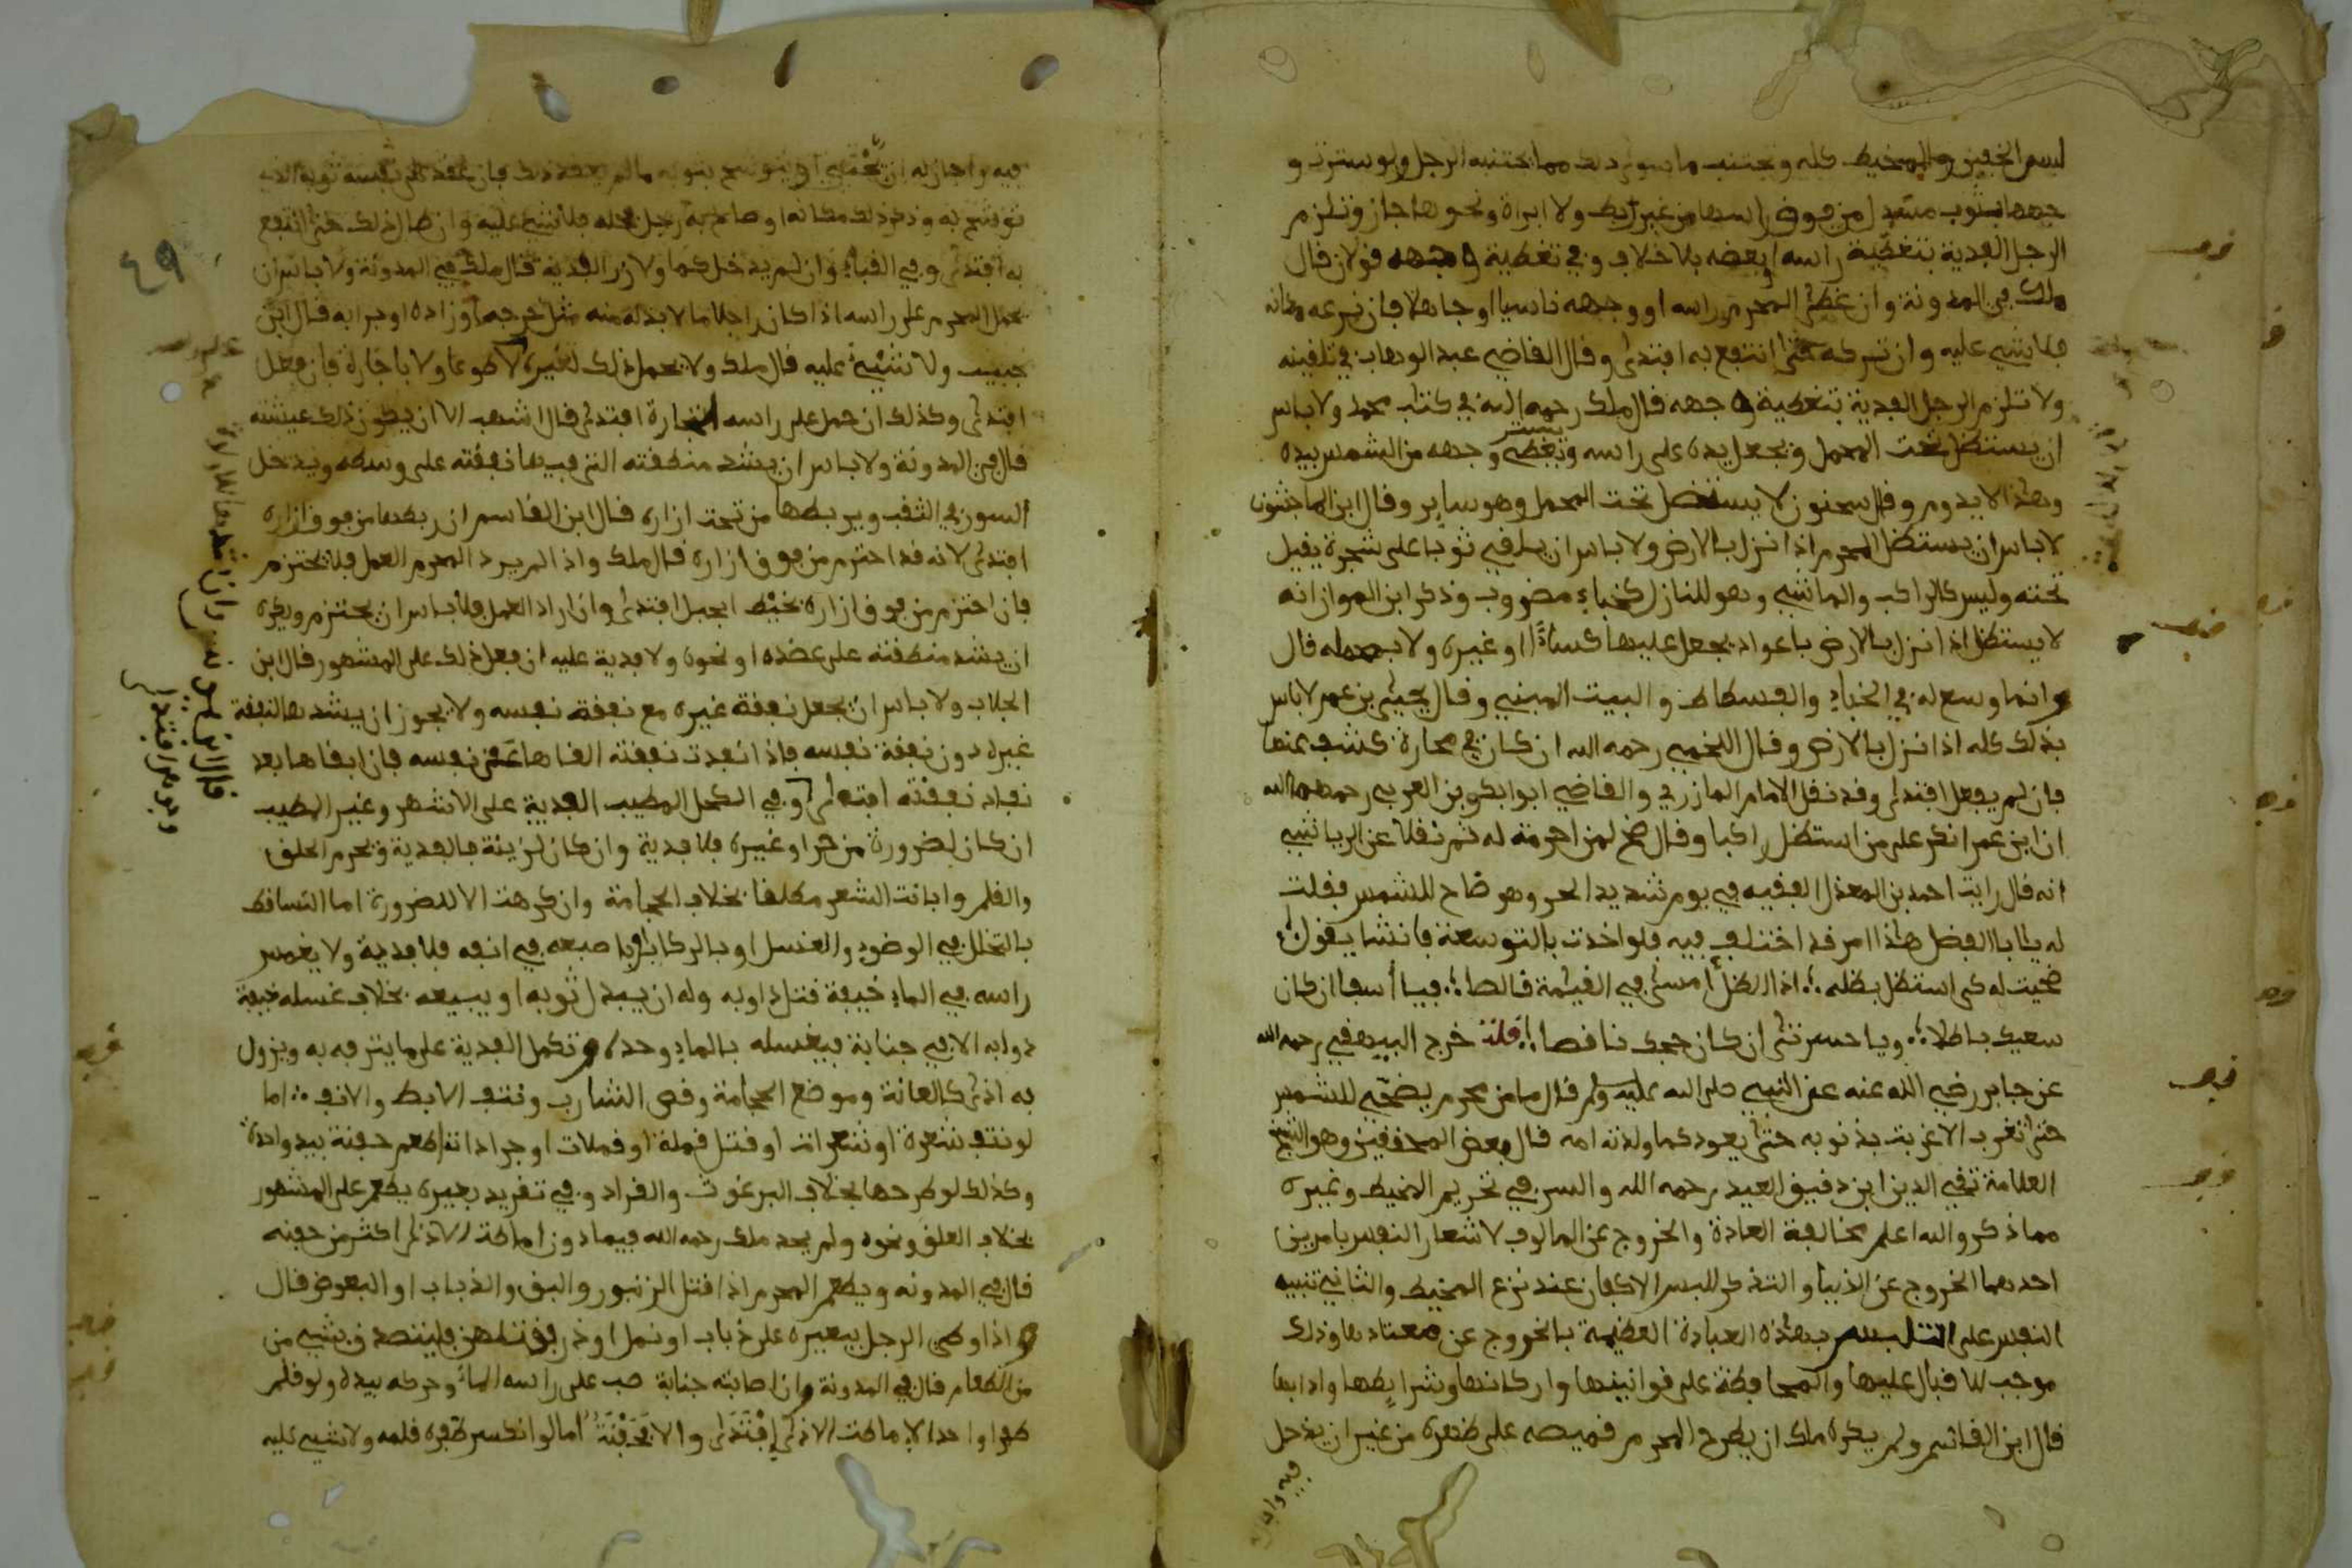 لبس الخفين والمخيط كله وتجتنب ما سوى ذلك مما يجتنبه الرجل ولو سترت و
جهها بثوب مسدل من فوق راسها من غير ربط ولا ابراة ونحوها جاز وتلزم
الرجل الفدية بتغطية راسه او بعضه بلا خلاف وفي تغطية وجهه قولان قال
ملك في المدونة وان غطى المحرم راسه او وجهه ناسيا او جاهلا فان نزعه مكانه
فلا شيء عليه وان تركه حتى انتفع به افتدى وقال القاضي عبد الوهاب في تلقينه
ولا تلزم الرجل الفدية بتغطية وجهه قال ملك رحمه الله في كتاب محمد ولا باس
ان يستظل تحت المحمل ويجعل يده على راسه ويستر وجهه من الشمس بيده
وهذا لا يدوم وقال سحنون لا يستظل تحت المحمل وهو ساير وقال ابن الماجشون
لا باس ان يستظل المحرم اذا نزل بالارض ولا باس ان يلقي ثوبا على شجرة يقيل
تحته وليس كالراكب والماشي وهو للنازل كخباء مضروب وذكر ابن المواز انه
لا يستظل اذا نزل بالارض باعواد يجعل عليها كساء او غيره ولا بمحمله قال
وانما وسع له في الخباء والفسطاط والبيت المبني وقال يحيى بن عمر لا باس
بذلك كله اذا نزل بالارض وقال اللخمي رحمه الله ان كان في محارة كشف عنها
فان لم يفعل افتدى وقد نقل الامام المازري والقاضي ابوا بكر بن العربي رحمهما الله
ان ابن عمر انكر على من استظل راكبا وقال اضح لمن احرمت له ثم نقلا عن الرياشي
انه قال رايت احمد بن المعذل الفقيه في يوم شديد الحر وهو ضاح للشمس فقلت
له يا ابا الفضل هذا امر قد اختلف فيه فلو اخذت بالتوسعة فانشا يقول
ضحيت له كي استظل بظله اذا الظل امسى في القيمة قالصا فيا أسفا ان كان
سعيك باطلا ويا حسرتى ان كان حجك ناقصا قلت خرج البيهقي رحمه الله
عن جابر رضي الله عنه عن النبي صلى الله عليه وسلم قال ما من محرم يضحي للشمس
حتى تغرب الا غربت بذنوبه حتى يعود كما ولدته امه قال بعض المحققين وهو الشيخ
العلامة تقي الدين ابن دقيق العيد رحمه الله والسر في تحريم المخيط وغيره
مما ذكر والله اعلم مخالفة العادة والخروج عن المالوف لاشعار النفس بامرين
احدهما الخروج عن الدنيا والتذكر للبس الاكفان عند نزع المخيط والثاني تنبيه
النفس على التلبس بهذه العبادة العظيمة بالخروج عن معتادها وذلك
موجب للاقبال عليها والمحافظة على قوانينها واركانها وشرايطها وادابها
قال ابن القاسم ولم يكره ملك ان يطرح المحرم قميصه على ظهره من غير ان يدخل
فيه واجاز
فيه واجاز له ان يحتبي او يتوشح بثوبه ما لم يعقد ذلك فان عقد على نفسه ثوبه الذي
توشح به وذكر ذلك مكانه او صاح به رجل فحله فلا شيء عليه وان طال ذلك حتى انتفع
به افتدى وفي القباء وان لم يدخل كما ولا زر الفدية قال ملك في المدونة ولا باس ان
يحمل المحرم على راسه اذا كان راجلا ما لا بد له منه مثل خرجه او زاده او جرابه قال ابن
حبيب ولا شيء عليه قال ملك ولا يحمل ذلك لغيره لا طوعا ولا باجارة فان فعل
افتدى وكذلك ان حمل على راسه لتجارة افتدى قال اشهب الا ان يكون ذلك عيشته
قال في المدونة ولا باس ان يشد منطقته التي فيها نفقته على وسطه ويدخل
السور في الثقب ويربطها من تحت ازاره قال ابن القاسم ان ربطها من فوق ازاره
افتدى لانه قد احتزم من فوق ازاره قال ملك واذا لم يرد المحرم العمل فلا يحتزم
فان احتزم من فوق ازاره بخيط او بحبل افتدى وان اراد العمل فلا باس ان يحتزم ويكره
ان يشد منطقته على عضده او نحوه ولا فدية عليه ان فعل ذلك على المشهور قال ابن
الجلاب ولا باس ان يجعل نفقة غيره مع نفقة نفسه ولا يجوز ان يشدها لنفقة
غيره دون نفقة نفسه فاذا نفدت نفقته القاها عن نفسه فان ابقاها بعد
نفاد نفقته افتدى وفي الكحل المطيب الفدية على الاشهر وغير المطيب
ان كان لضرورة من حر او غيره فلا فدية وان كان لزينة فالفدية ويحرم الحلق
والقلم وابانت الشعر مطلقا بخلاف الحجامة وان كرهت الا لضرورة اما التساقط
بالتخلل في الوضوء والغسل او بالركاب او باصبعه في انفه فلا فدية ولا يغمس
راسه في الماء خيفة قتل دوابه وله ان يبدل ثوبه او يبيعه بخلاف غسله خيفة
دوابه الا في جنابة فيغسله بالماء وحده وتكمل الفدية على ما يترفه به ويزول
به اذى كالعانة وموضع الحجامة وقص الشارب ونتف الابط والانف اما
لو نتف شعرة او شعرات او قتل قملة او قملات او جرادا اطعم حفنة بيد واحدة
وكذلك لو طرحها بخلاف البرغوث والقراد وفي تقريد بعيره يطعم على المشهور
بخلاف العلق ونحوه ولم يحد ملك رحمه الله فيما دون اماطة الاذى اكثر من حفنة
قال في المدونة ويطعم المحرم اذا قتل الزنبور والبق والذباب او البعوض قال
واذا وطي الرجل ببعيره على ذباب او نمل او ذر فقتلهن فليتصدق بشيء من
من الطعام قال في المدونة وان اصابته جنابة صب على راسه الماء وحركه بيده ولو قلم
ظفرا واحدا لاماطت الاذى إفتدى والا فحفنة اما لو انكسر ظفره قلمه ولا شيء عليه
٤٩